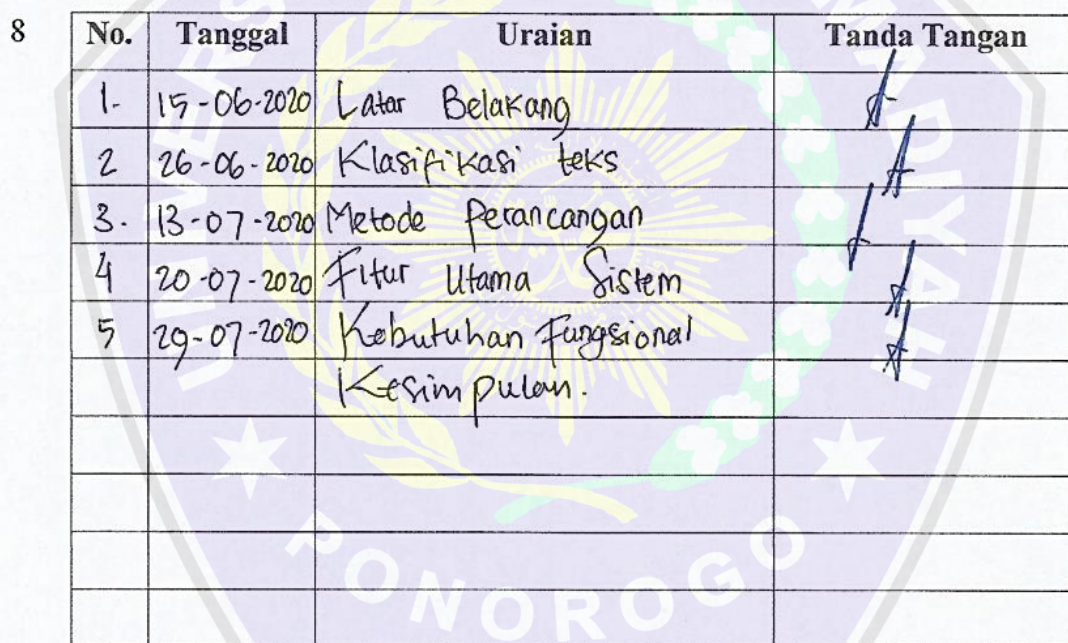 8
No. Tanggal Uraian Tanda Tangan
1- 15-06-2020 Latar Belakang
2 26-06-2020 Klasifikasi teks
3. 13-07-2020 Metode Perancangan
4 20-07-2020 Fitur Utama Sistem
5 29-07-2020 Kebutuhan Fungsional
Kesimpulan.
PONOROGO